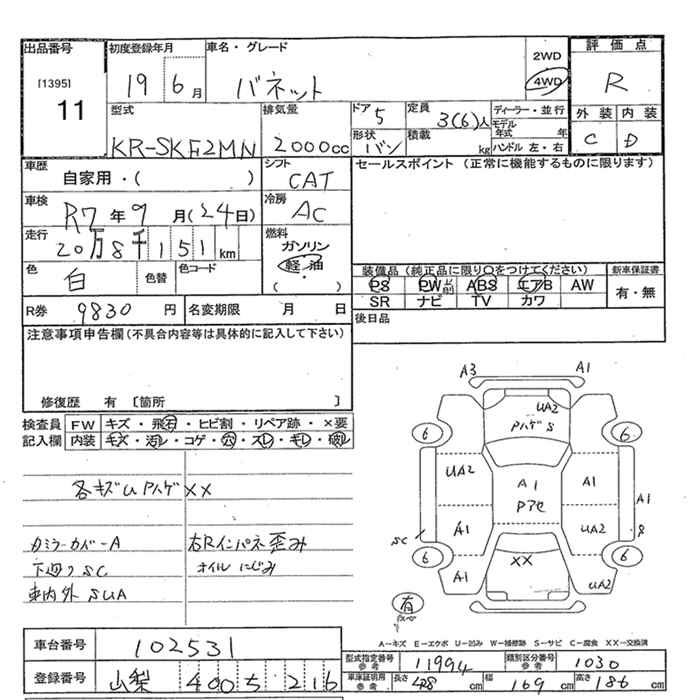 出品番号 初度登録年月 車名・グレード 2WD 評価点
[1395] 11 19 6月 バネット 4WD R
型式 排気量 ドア 5 定員 3(6)人 ディーラー・並行 外装 内装
KR-SKF2MN 2000cc 形状 バン 積載 kg モデル年式 年 ハンドル 左・右 C D
車歴 自家用・( ) シフト CAT セールスポイント (正常に機能するものに限ります)
車検 R7年9月(24日) 冷房 AC
走行 20万8千151km 燃料 ガソリン 軽油 ( )
色 白 色替 色コード 装備品 (純正品に限り○をつけてください) 新車保証書
PS PW ABS エアB AW 有・無
SR ナビ TV カワ
R券 9830円 名変期限 月 日 後日品
注意事項申告欄 (不具合内容等は具体的に記入して下さい)
修復歴 有 [箇所 ]
検査員 FW キズ・飛石・ヒビ割・リペア跡・×要
記入欄 内装 キズ・汚レ・コゲ・穴・スレ・キレ・
各キズUPハゲXX
カミラーカバーA 右Rインパネ歪み
下廻りSC オイルにじみ
車内外SUA
A3 A1
UA2
PハゲS
6 6
UA2 A1 A1
Pアセ A1
A1 UA2 8
SC XX
6 6
A1 UA2
有
A-キズ E-エクボ U-凹み W-補修跡 S-サビ C-腐食 XX-交換済
車台番号 102531
型式指定番号 参考 11994 類別区分番号 参考 1030
登録番号 山梨 400 5 216
車庫証明用 参考 長さ 428cm 幅 169cm 高さ 186cm